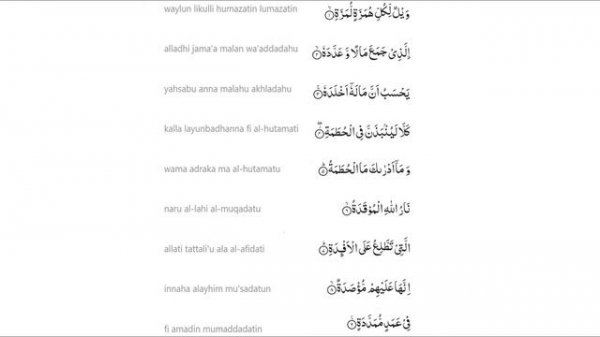 waylun likulli humazatin lumazatin وَيْلٌ لِّكُلِّ هُمَزَةٍ لُّمَزَةِۙ‏﴿۱﴾
alladhi jama'a malan wa'addadahu اۨلَّذِىْ جَمَعَ مَالًا وَّ عَدَّدَهٗۙ‏﴿۲﴾
yahsabu anna malahu akhladahu يَحْسَبُ اَنَّ مَالَهٗۤ اَخْلَدَهٗ‌ۚ‏﴿۳﴾
kalla layunbadhanna fi al-hutamati كَلَّا‌ لَيُنْۢبَذَنَّ فِى الْحُطَمَةِۖ‏﴿۴﴾
wama adraka ma al-hutamatu وَمَاۤ اَدْرٰٮكَ مَا الْحُطَمَةُؕ‏﴿۵﴾
naru al-lahi al-muqadatu نَارُ اللّٰهِ الْمُوْقَدَةُۙ‏﴿۶﴾
allati tattali'u ala al-afidati الَّتِىْ تَطَّلِعُ عَلَى الْاَفْـِٕدَةِؕ‏﴿۷﴾
innaha alayhim mu'sadatun اِنَّهَا عَلَيْهِمْ مُّؤْصَدَةٌۙ‏﴿۸﴾
fi amadin mumaddadatin فِىْ عَمَدٍ مُّمَدَّدَةٍ‏﴿۹﴾